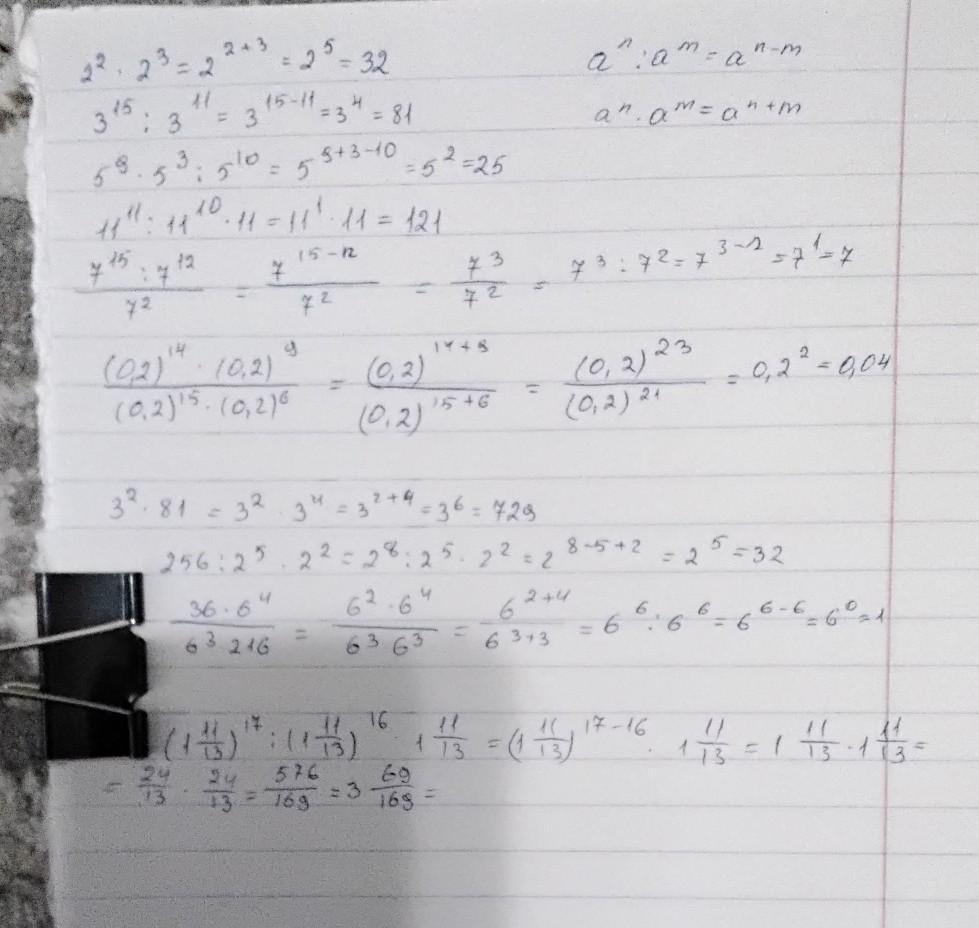 2² · 2³ = 2²⁺³ = 2⁵ = 32
aⁿ : aᵐ = aⁿ⁻ᵐ
3¹⁵ : 3¹¹ = 3¹⁵⁻¹¹ = 3⁴ = 81
aⁿ · aᵐ = aⁿ⁺ᵐ
5⁹ · 5³ : 5¹⁰ = 5⁹⁺³⁻¹⁰ = 5² = 25
11¹¹ : 11¹⁰ · 11 = 11¹ · 11 = 121
(7¹⁵ : 7¹²)/7² = 7¹⁵⁻¹²/7² = 7³/7² = 7³ : 7² = 7³⁻² = 7¹ = 7
((0,2)¹⁴ · (0,2)⁹)/((0,2)¹⁵ · (0,2)⁶) = (0,2)¹⁴⁺⁹/(0,2)¹⁵⁺⁶ = (0,2)²³/(0,2)²¹ = 0,2² = 0,04
3² · 81 = 3² · 3⁴ = 3²⁺⁴ = 3⁶ = 729
256 : 2⁵ · 2² = 2⁸ : 2⁵ · 2² = 2⁸⁻⁵⁺² = 2⁵ = 32
(36 · 6⁴)/(6³ 216) = (6² · 6⁴)/(6³ 6³) = 6²⁺⁴/6³⁺³ = 6⁶ : 6⁶ = 6⁶⁻⁶ = 6⁰ = 1
(1 11/13)¹⁷ : (1 11/13)¹⁶ · 1 11/13 = (1 11/13)¹⁷⁻¹⁶ · 1 11/13 = 1 11/13 · 1 11/13 =
= 24/13 · 24/13 = 576/169 = 3 69/169 =